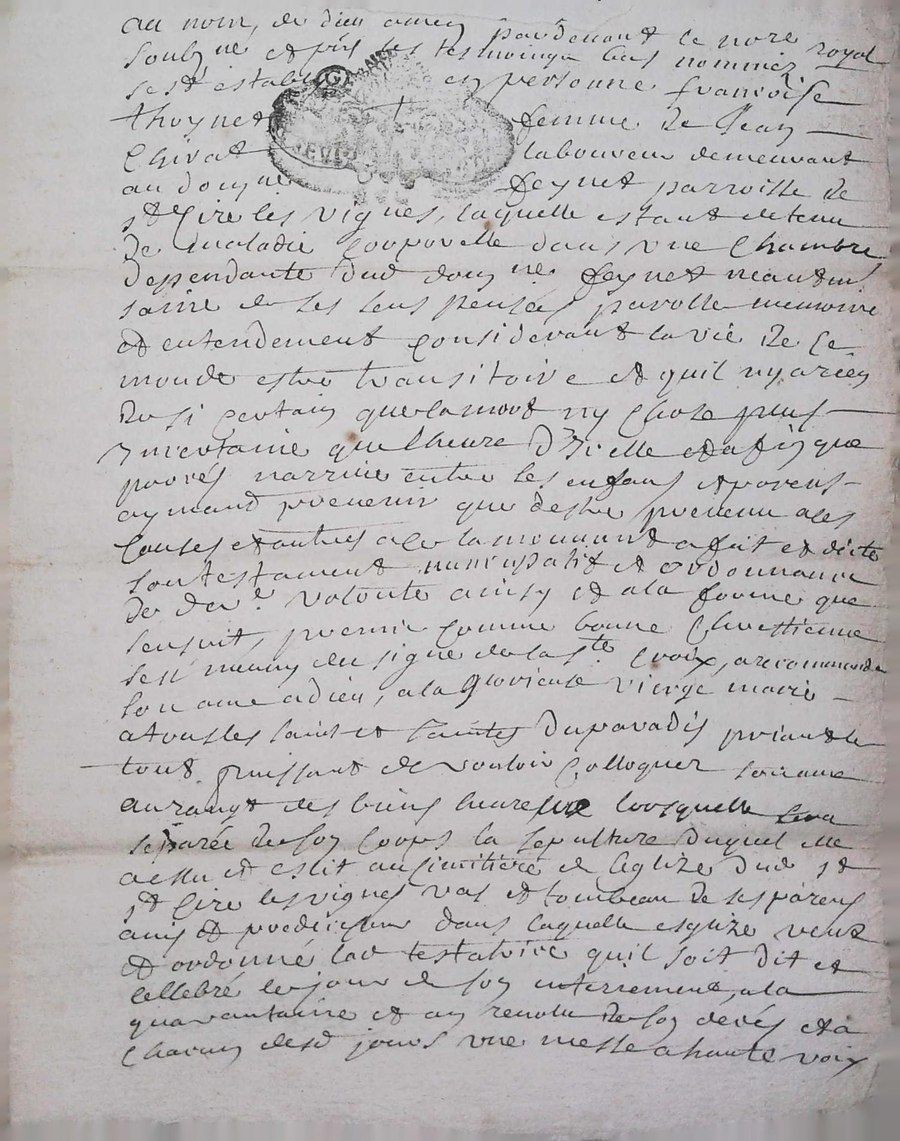 au nom, de dieu amen pardevant le nore royal
soubzne et pñs les tesmoingz bas nommez
sest establi en personne francoise
thoynet femme de Jean
Chirat laboureur demeurant
au douyne feynet parroisse de
st Cire les vignes, laquelle estant detenu
de maladie corporelle dans une Chambre
dependante dud douyne. feynet neantm.
saine de ses sens pensés parolle memoire
et entendement considerant la vie de ce
monde estre transitoire et quil ny a rien
de si certain que la mort ny chose plus
Incertaine que lheure d'Icelle et afin que
procés narrive entre ses enfans et parens
aymant prevenir que destre prevenu a ces
Causes et autres a ce la mouvant a fait et dicte
son testament nuncupatif et ordonnance
de der.e volonte ainsy et a la forme que
sensuit, premier comme bonne Chrestienne
sest munie du signe de la ste Croix, a recommandé
son ame a dieu, a la glorieuse vierge marie
a tous les saints et saintes du paradis priant le
tout puissant de vouloir Colloquer son ame
au rangt des bien heureux lorsquelle sera
separée de son corps la sepulture duquel elle
a eslu et eslit au cimitiere de leglize dud st
st Cire les vignes vas et tombeau de ses parens
amis et predecesseurs dans laquelle esglize veut
et ordonné lad testatrice quil soit dit et
cellebré le jour de son enterrement, a la
quarantaine et an revolu de son decés et a
Chacun desd jours une messe a haute voix